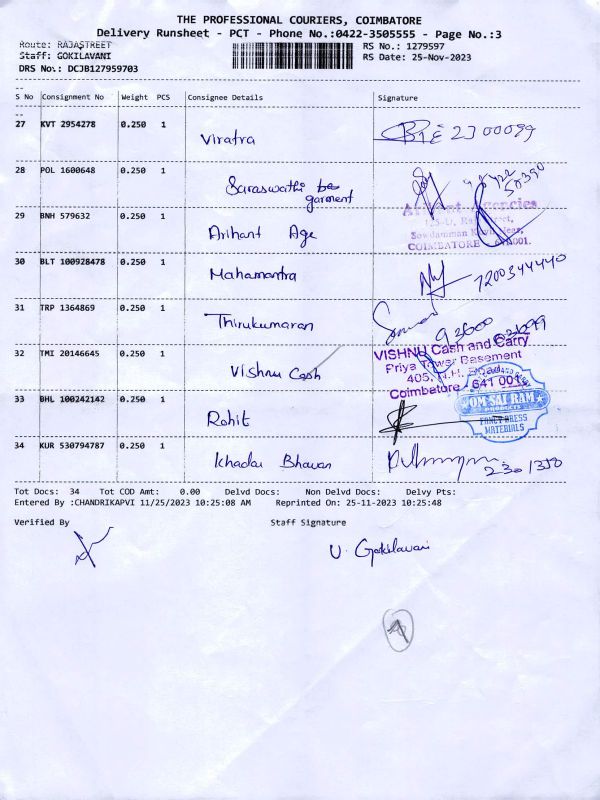 THE PROFESSIONAL COURIERS, COIMBATORE
Delivery Runsheet - PCT - Phone No.:0422-3505555 - Page No.:3
Route: RAJASTREET
RS No.: 1279597
Staff: GOKILAVANI
RS Date: 25-Nov-2023
DRS No.: DCJB127959703
S No Consignment No Weight PCS Consignee Details Signature
27 KVT 2954278 0.250 1 Viratra 2300099
28 POL 1600648 0.250 1 Saraswathi garment
29 BNH 579632 0.250 1 Arihant Age
Arihant Agencies
COIMBATORE
30 BLT 100928478 0.250 1 Mahamantra 7200344440
31 TRP 1364869 0.250 1 Thirukumaran
32 TMI 20146645 0.250 1 Vishnu Cash
VISHNU Cash and Carry
Priya Tower Basement
405, N.H. Road
Coimbatore - 641 001.
33 BHL 100242142 0.250 1 Rohit
OM SAI RAM
PRODUCTS
FANCY DRESS
MATERIALS
34 KUR 530794787 0.250 1 Khadai Bhavan 2301350
Tot Docs: 34 Tot COD Amt: 0.00 Delvd Docs: Non Delvd Docs: Delvy Pts:
Entered By :CHANDRIKAPVI 11/25/2023 10:25:08 AM Reprinted On: 25-11-2023 10:25:48
Verified By Staff Signature
V. Gokilavani